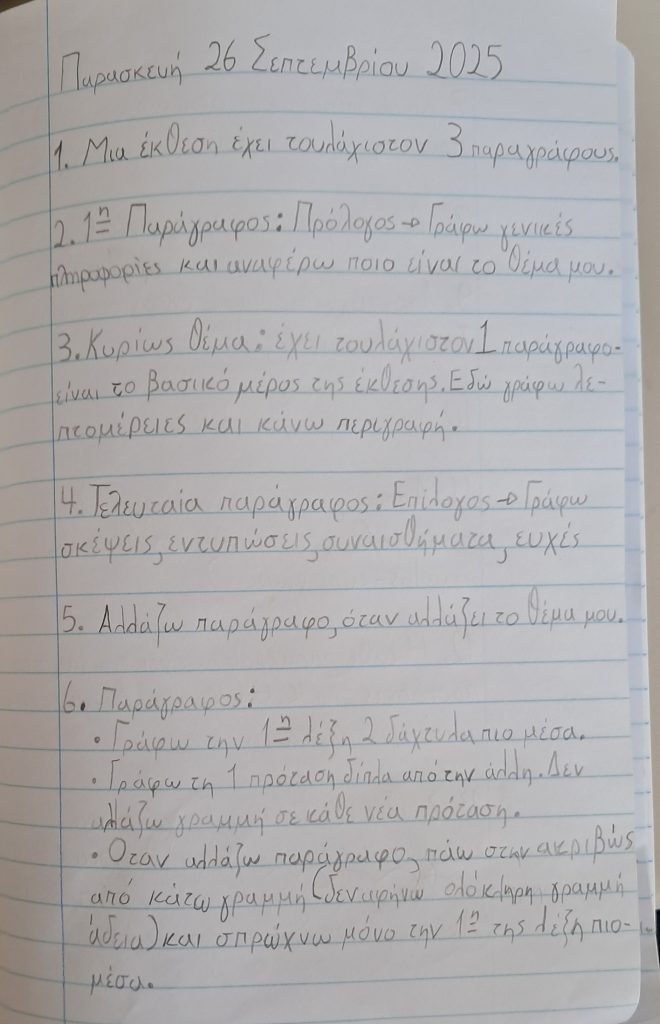 Παρασκευή 26 Σεπτεμβρίου 2025
1. Μια έκθεση έχει τουλάχιστον 3 παραγράφους.
2. 1η Παράγραφος: Πρόλογος → Γράφω γενικές
πληροφορίες και αναφέρω ποιο είναι το θέμα μου.
3. Κυρίως θέμα: έχει τουλάχιστον 1 παράγραφο-
είναι το βασικό μέρος της έκθεσης. Εδώ γράφω λε-
πτομέρειες και κάνω περιγραφή.
4. Τελευταία παράγραφος: Επίλογος → Γράφω
σκέψεις, εντυπώσεις, συναισθήματα, ευχές
5. Αλλάζω παράγραφο, όταν αλλάζει το θέμα μου.
6. Παράγραφος:
• Γράφω την 1η λέξη 2 δάχτυλα πιο μέσα.
• Γράφω τη 1 πρόταση δίπλα από την άλλη. Δεν
αλλάζω γραμμή σε κάθε νέα πρόταση.
• Όταν αλλάζω παράγραφο, πάω στην ακριβώς
από κάτω γραμμή (δεν αφήνω ολόκληρη γραμμή
άδεια) και σπρώχνω μόνο την 1η της λέξη πιο-
μέσα.